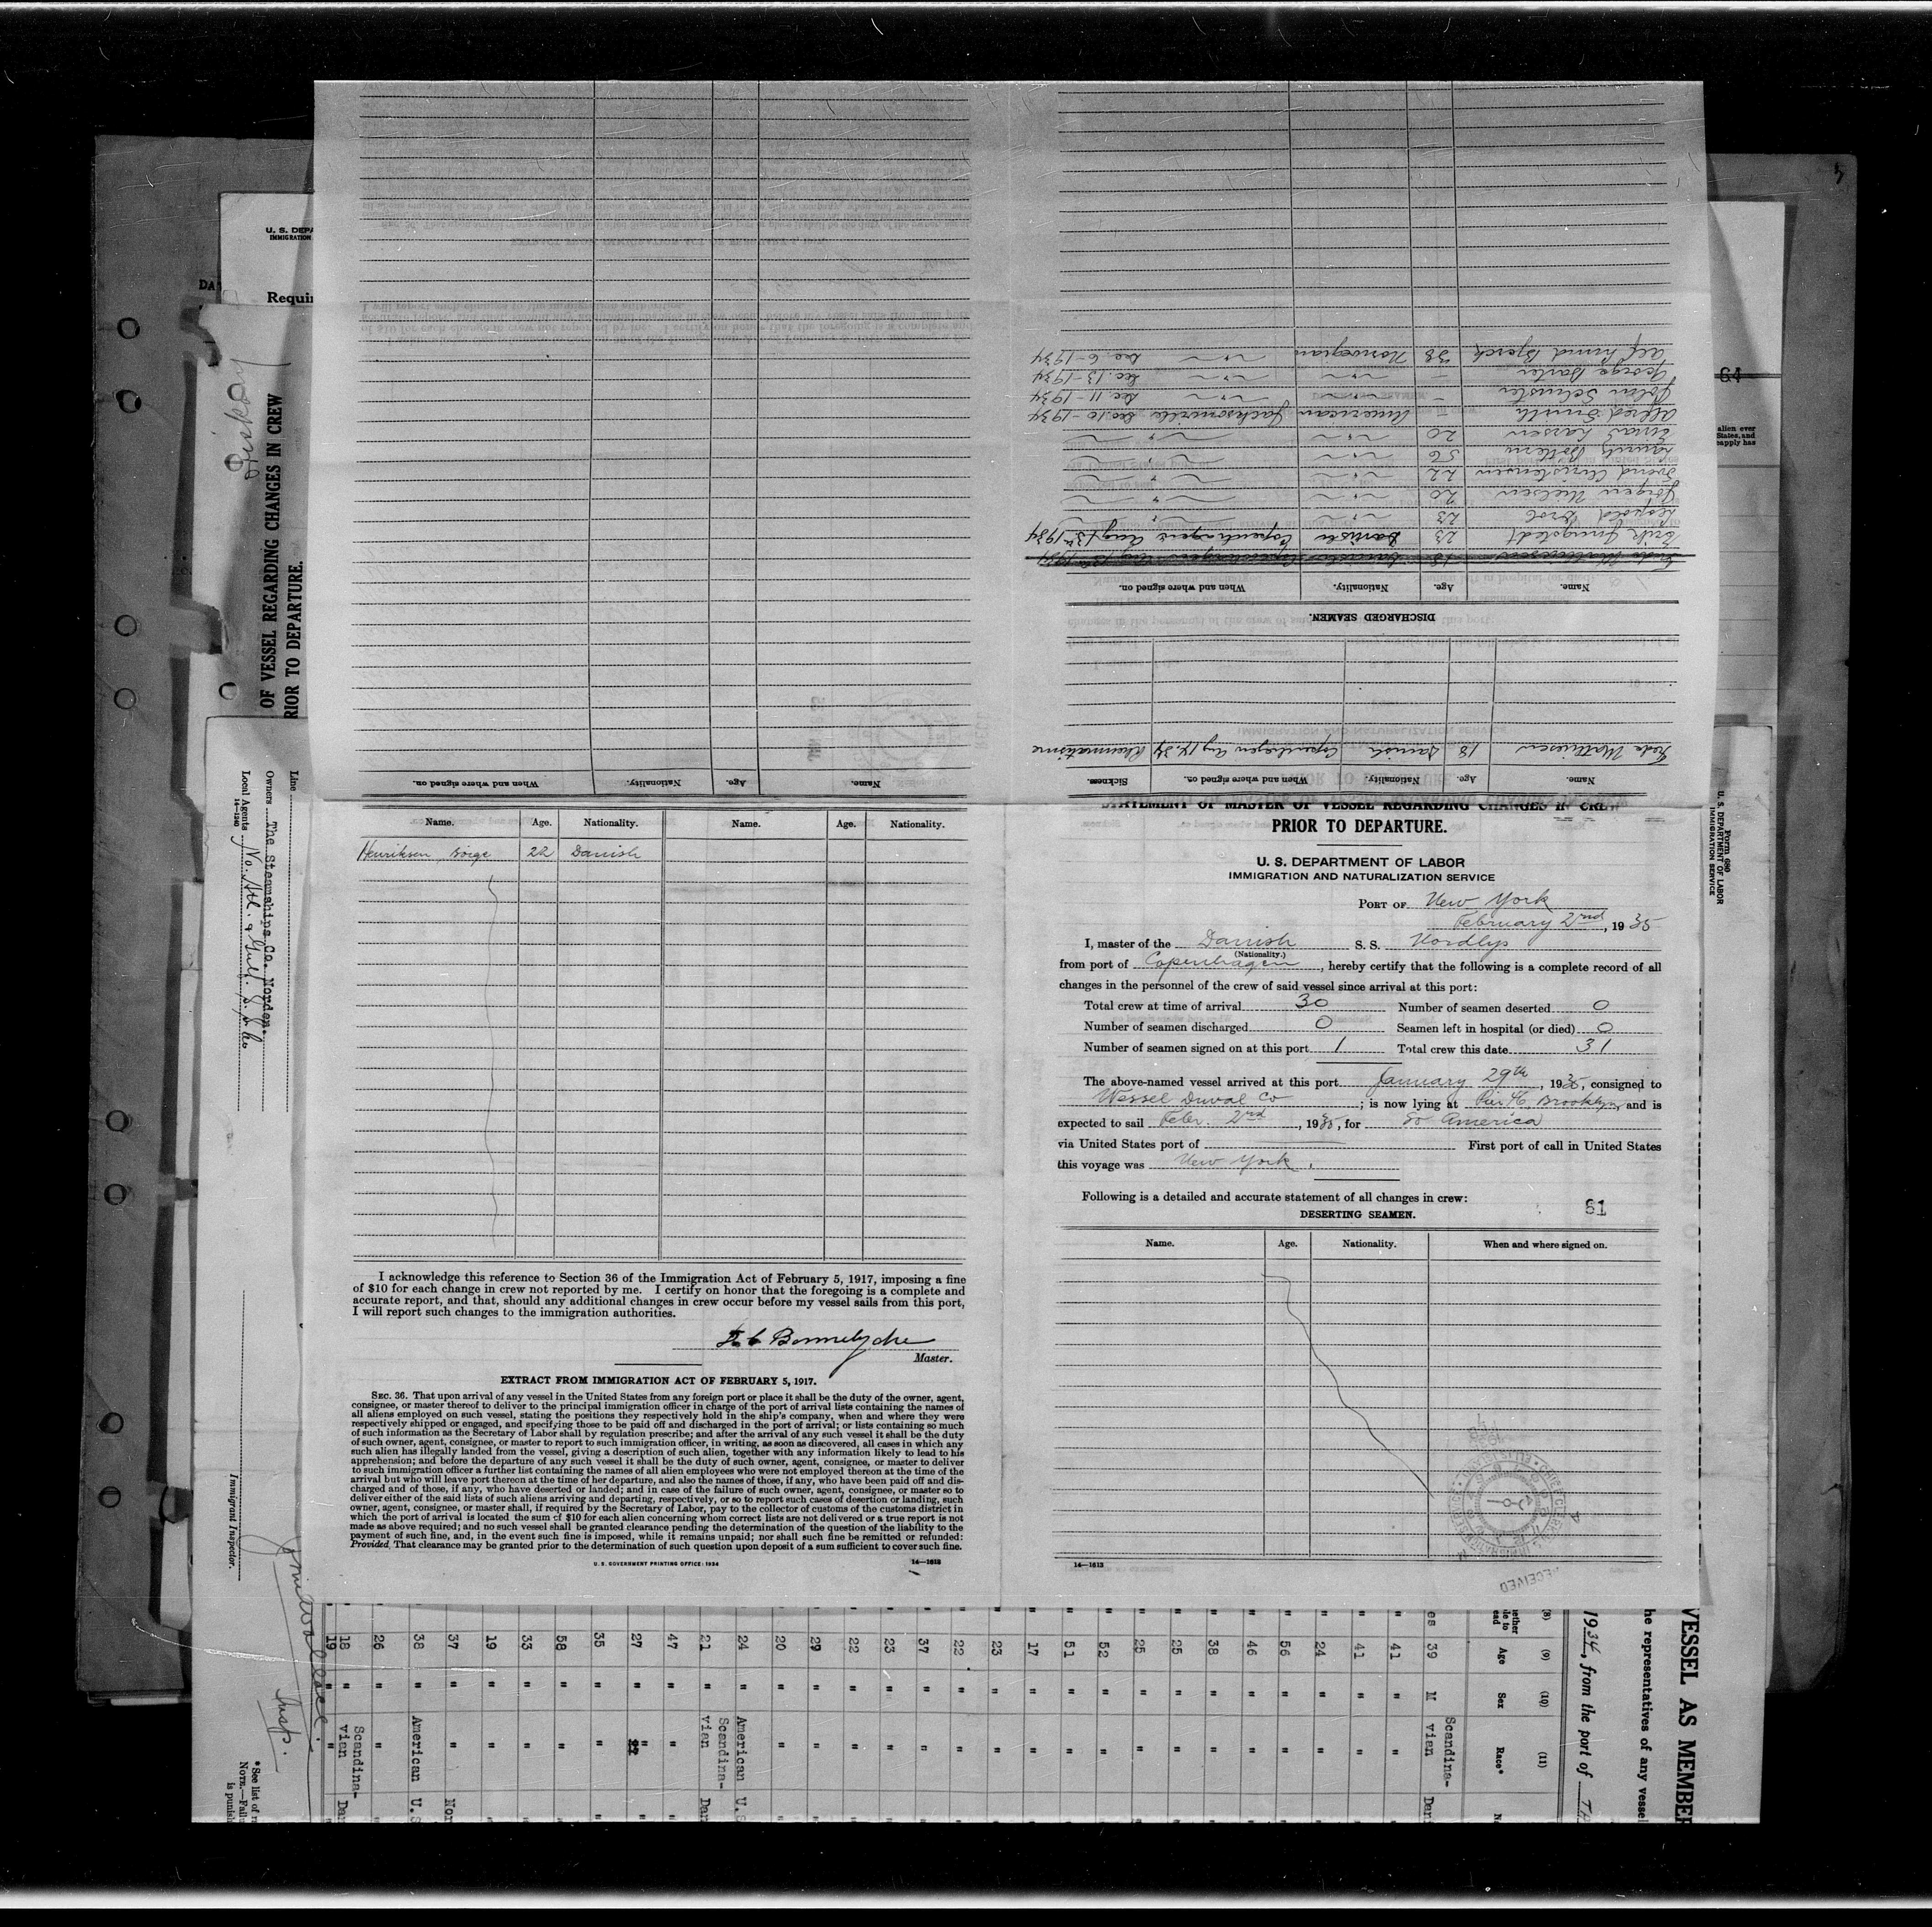 STATEMENT OF MASTER OF VESSEL REGARDING CHANGES IN CREW
PRIOR TO DEPARTURE.
U. S. DEPARTMENT OF LABOR
IMMIGRATION AND NATURALIZATION SERVICE
PORT OF New York
February 2nd, 1935
I, master of the Danish S. S. Nordlys
(Nationality.)
from port of Copenhagen, hereby certify that the following is a complete record of all
changes in the personnel of the crew of said vessel since arrival at this port:
Total crew at time of arrival 30 Number of seamen deserted 0
Number of seamen discharged 0 Seamen left in hospital (or died) 0
Number of seamen signed on at this port 1 Total crew this date 31
The above-named vessel arrived at this port January 29th, 1935, consigned to
Wessel Duval Co; is now lying at Pier 46, Brooklyn, and is
expected to sail Febr. 2nd, 1935, for So America
via United States port of First port of call in United States
this voyage was New York.
Following is a detailed and accurate statement of all changes in crew:
61
DESERTING SEAMEN.
Name. Age. Nationality. When and where signed on.
14—1613
RECEIVED
Name. Age. Nationality. Name. Age. Nationality.
Henriksen, Börge 22 Danish
I acknowledge this reference to Section 36 of the Immigration Act of February 5, 1917, imposing a fine
of $10 for each change in crew not reported by me. I certify on honor that the foregoing is a complete and
accurate report, and that, should any additional changes in crew occur before my vessel sails from this port,
I will report such changes to the immigration authorities.
Master.
EXTRACT FROM IMMIGRATION ACT OF FEBRUARY 5, 1917.
SEC. 36. That upon arrival of any vessel in the United States from any foreign port or place it shall be the duty of the owner, agent,
consignee, or master thereof to deliver to the principal immigration officer in charge of the port of arrival lists containing the names of
all aliens employed on such vessel, stating the positions they respectively hold in the ship's company, when and where they were
respectively shipped or engaged, and specifying those to be paid off and discharged in the port of arrival; or lists containing so much
of such information as the Secretary of Labor shall by regulation prescribe; and after the arrival of any such vessel it shall be the duty
of such owner, agent, consignee, or master to report to such immigration officer, in writing, as soon as discovered, all cases in which any
such alien has illegally landed from the vessel, giving a description of such alien, together with any information likely to lead to his
apprehension; and before the departure of any such vessel it shall be the duty of such owner, agent, consignee, or master to deliver
to such immigration officer a further list containing the names of all alien employees who were not employed thereon at the time of the
arrival but who will leave port thereon at the time of her departure, and also the names of those, if any, who have been paid off and dis-
charged and of those, if any, who have deserted or landed; and in case of the failure of such owner, agent, consignee, or master so to
deliver either of the said lists of such aliens arriving and departing, respectively, or so to report such cases of desertion or landing, such
owner, agent, consignee, or master shall, if required by the Secretary of Labor, pay to the collector of customs of the customs district in
which the port of arrival is located the sum of $10 for each alien concerning whom correct lists are not delivered or a true report is not
made as above required; and no such vessel shall be granted clearance pending the determination of the question of the liability to the
payment of such fine, and, in the event such fine is imposed, while it remains unpaid; nor shall such fine be remitted or refunded:
Provided, That clearance may be granted prior to the determination of such question upon deposit of a sum sufficient to cover such fine.
U. S. GOVERNMENT PRINTING OFFICE: 1934
14—1613
Name. Age. Nationality. When and where signed on. Sickness.
18 Danish Copenhagen Aug 14.34 Rheumatisme
DISCHARGED SEAMEN.
Name. Age. Nationality. When and where signed on.
Erik Jungstedt 23 Danish Copenhagen Aug 13th 1934
Leopold Grob 23 " "
Jörgen Nielsen 20 " "
Svend Christensen 22 " "
56 " "
Einar Larsen 20 " "
Alfred Smith American Jacksonville Dec. 10-1934
Schuster - " " Dec. 11-1934
George Baxter - " " Dec. 13-1934
Alf Bjerck 38 Norwegian " Dec. 6-1934
Name. Age. Nationality. When and where signed on.
U. S. DEPA
IMMIGRATION
DA
Requir
OF VESSEL REGARDING CHANGES IN CREW
RIOR TO DEPARTURE.
Line
Owners The Steamships Co. Norden.
Local Agents No. Atl. & Gulf. S. S. Co
14—1240
Immigrant Inspector.
Insp.
* See list of r
NOTE.—Fail
is punish
64
alien ever
States, and
eapply has
Form 680
U. S. DEPARTMENT OF LABOR
IMMIGRATION SERVICE
VESSEL AS MEMBER
he representatives of any vessel
1934, from the port of
(8) (9) (10) (11)
Age Sex Race*
es 39 M Scandina-
vian Dan
" 41 " "
" 41 " "
" 24 " "
" 56 " "
" 46 " "
" 38 " "
" 25 " "
" 25 " "
" 52 " "
" 51 " "
" 17 " "
" 23 " "
" 22 " "
" 37 " "
" 23 " "
" 22 " "
" 29 " "
" 20 " "
" 24 " American U.S
" 21 " Scandina-
vian Dan
" 47 " "
" 27 " "
" 35 " "
" 58 " "
" 33 " "
" 19 " "
" 37 " " Nor
" 38 " American U.S
" 26 " "
" 18 " Scandina-
vian Dan
" 19 "